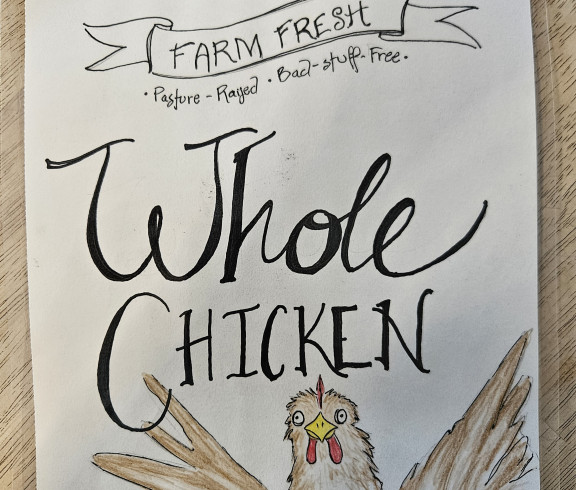 FARM FRESH
• Pasture-Rayed • Bad-stuff-Free •
Whole
CHICKEN